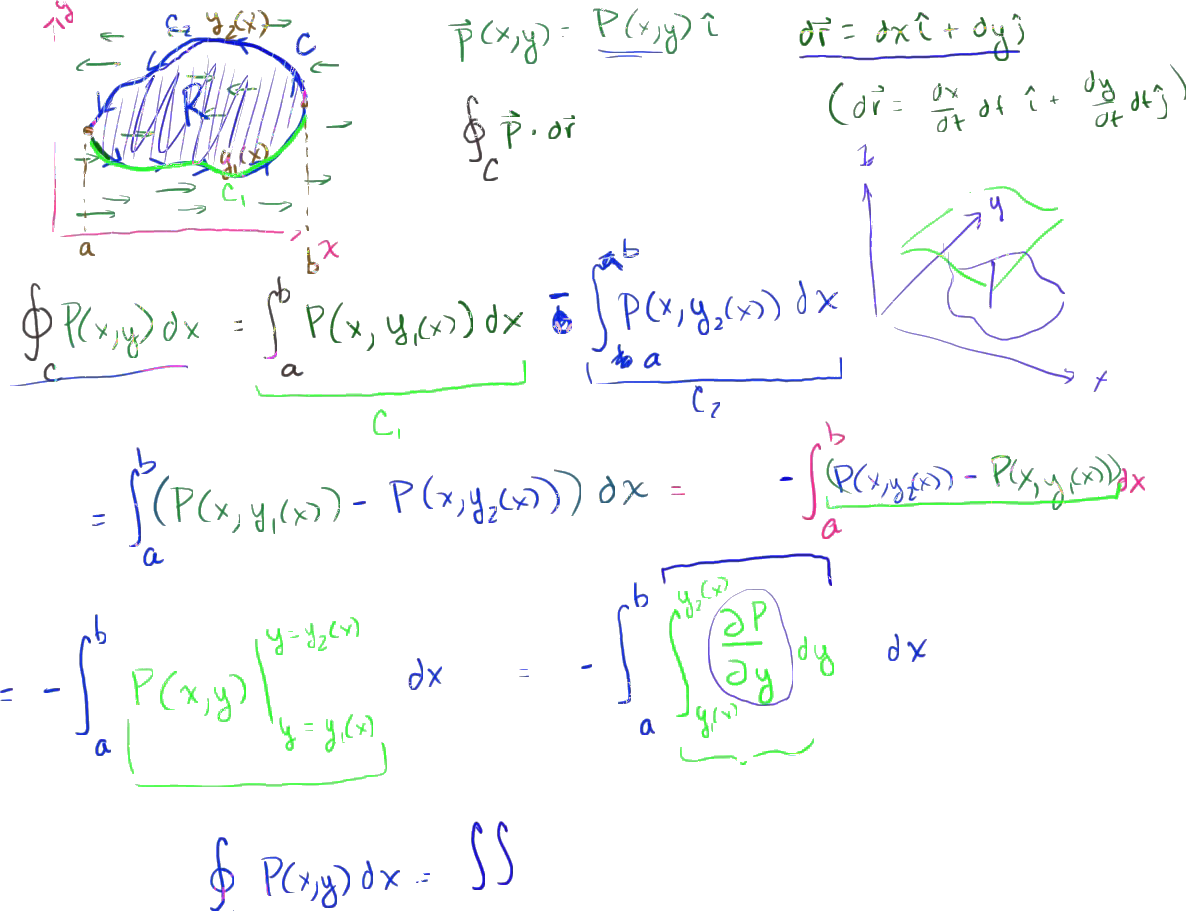 y C₂ y₂(x) C
R
y₁(x)
C₁
a b x
P⃗(x,y) = P(x,y) î
dr⃗ = dx î + dy ĵ
(dr⃗ = dx/dt dt î + dy/dt dt ĵ)
∮_C P⃗ · dr⃗
z y x
∮_C P(x,y) dx = ∫_a^b P(x, y₁(x)) dx - ∫_a^b P(x, y₂(x)) dx
C₁ C₂
= ∫_a^b (P(x, y₁(x)) - P(x, y₂(x))) dx = - ∫_a^b (P(x, y₂(x)) - P(x, y₁(x))) dx
= - ∫_a^b P(x,y) |_{y = y₁(x)}^{y = y₂(x)} dx = - ∫_a^b ∫_{y₁(x)}^{y₂(x)} ∂P/∂y dy dx
∮ P(x,y) dx = ∬